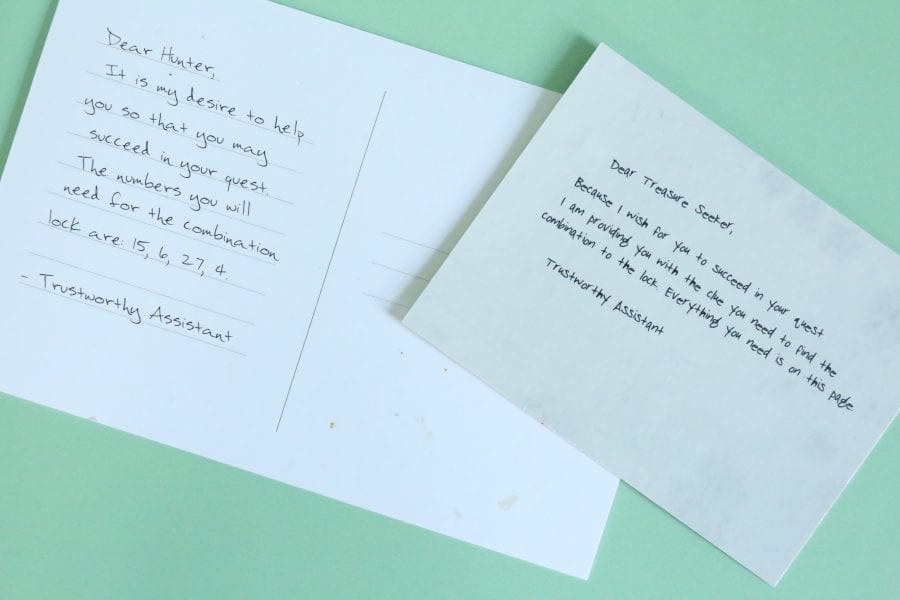 Dear Hunter,
It is my desire to help
you so that you may
succeed in your quest.
The numbers you will
need for the combination
lock are: 15, 6, 27, 4.
- Trustworthy Assistant
Dear Treasure Seeker,
Because I wish for you to succeed in your quest
I am providing you with the clue you need to find the
combination to the lock. Everything you need is on this page
Trustworthy Assistant